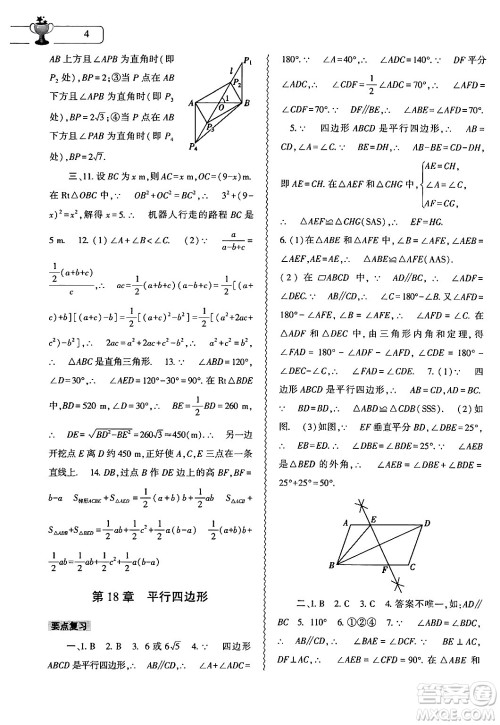 4
AB 上方且∠APB 为直角时(即
P₂处),BP=2;③当 P 点在 AB
下方且∠APB 为直角时(即 P₃
处),BP=2√3;④当 P 点在 AB
下方且∠BAP 为直角时(即 P₄
处),BP=2√7.
P₁
l
P₂
A
O
B
P₃
P₄
三、11. 设 BC 为 x m,则 AC=x m,OC=(9-x)m.
在 Rt△OBC 中,∵ OB²+OC²=BC²,∴ 3²+(9-
x)²=x² ∴ x=5. ∴ 机器人行走的路程 BC 是
5 m. 12. (1)∠A+∠B<∠C. (2)∵ a/(a-b+c)=
½(a+b+c)/c, ∴ ac=½(a+b+c)(a-b+c)=½[(a
+c)+b][(a+c)-b]=½[(a+c)²-b²]=½(a²+2ac+
c²-b²), ∴ 2ac=a²+2ac+c²-b², ∴ a²+c²=b²,
∴ △ABC 是直角三角形. 13. ∵ ∠ABD=120°,
∠D=30°, ∴ ∠AED=120°-30°=90°, 在 Rt△BDE
中,BD=520 m,∠D=30°, ∴ BE=½BD=260 m,
∴ DE=√(BD²-BE²)=260√3≈450(m). ∴ 另一边
开挖点 E 离 D 约 450 m,正好使 A,C,E 三点在一条
直线上. 14. DB,过点 B 作 DE 边上的高 BF,BF=
b-a S梯形ACBE+S△AED=½(a+b)b+½ab S△ACB
+S△ADB+S△BED=½ab+½c²+½a(b-a) ½(a+b)b+
½ab=½ab+½c²+½a(b-a)
第 18 章 平行四边形
要点复习
一、1. B 2. B 3. 6 或 6√5 4. ∵ 四边形
ABCD 是平行四边形,∴ ∠A+∠ADC=
180°. ∵ ∠A=40°,∴ ∠ADC=140°. ∵ DF 平分
∠ADC,∴ ∠CDF=½∠ADC=70°,∴ ∠AFD=
∠CDF=70°. ∵ DF∥BE,∴ ∠ABE=∠AFD=70°.
5. ∵ 四边形 ABCD 是平行四边形,∴ ∠A=∠C.
∵ BE=DH,∴ AB-BE=CD-DH,
即 AE=CH. 在△AEF 和△CHG 中,
AE=CH,
∠A=∠C,
AF=CG,
∴ △AEF≌△CHG(SAS),∴ EF=HG.
6. (1)在△ABE 和△AFE 中,∠B=∠AFE,∠AEB=
∠AEF,AE=AE,∴ △ABE≌△AFE(AAS).
(2)在▱ABCD 中,∵ AD∥BC,∴ ∠ADF=
∠DEC. ∵ AB∥CD,∴ ∠C=180°-∠B. 又∠AFD=
180°-∠AFE,∠B=∠AFE,∴ ∠AFD=∠C. 在
△ADF 与△DEC 中,由三角形内角和定理,得
∠FAD=180°-∠ADF-∠AFD,∠CDE=180°-
∠DEC-∠C,∴ ∠FAD=∠CDE. 7. (1)∵ 四
边形 ABCD 是平行四边形,∴ AB=CD,AD=BC.
∵ BD=BD,∴ △ABD≌△CDB(SSS). (2)如
图. (3)∵ EF 垂直平分 BD,∠DBE=25°,
∴ EB=ED,∴ ∠DBE=∠BDE=25°. ∵ ∠AEB
是△BED 的外角,∴ ∠AEB=∠DBE+∠BDE=
25°+25°=50°.
A
E
D
B
F
C
二、1. B 2. C 3. C 4. 答案不唯一,如:AD∥
BC 5. 110° 6. ①②④ 7. (1)∵ 四边形
ABCD 是平行四边形,∴ AB∥CD,∴ ∠BAE=
∠EDF. ∵ E 为 AD 中点,∴ AE=DE. 在△AEB 和
答案圈